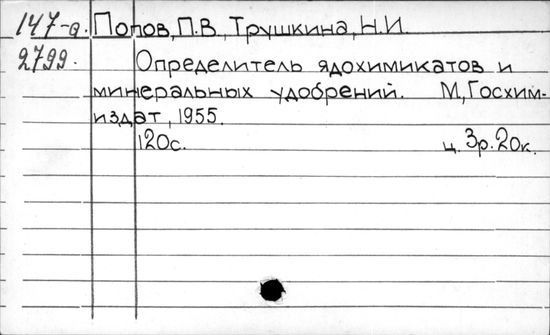 147-а. Попов, П.В., Трушкина, Н.И.
2799. Определитель ядохимикатов и
минеральных удобрений. М., Госхим-
издат, 1955.
120с. ц. 3р.20к.